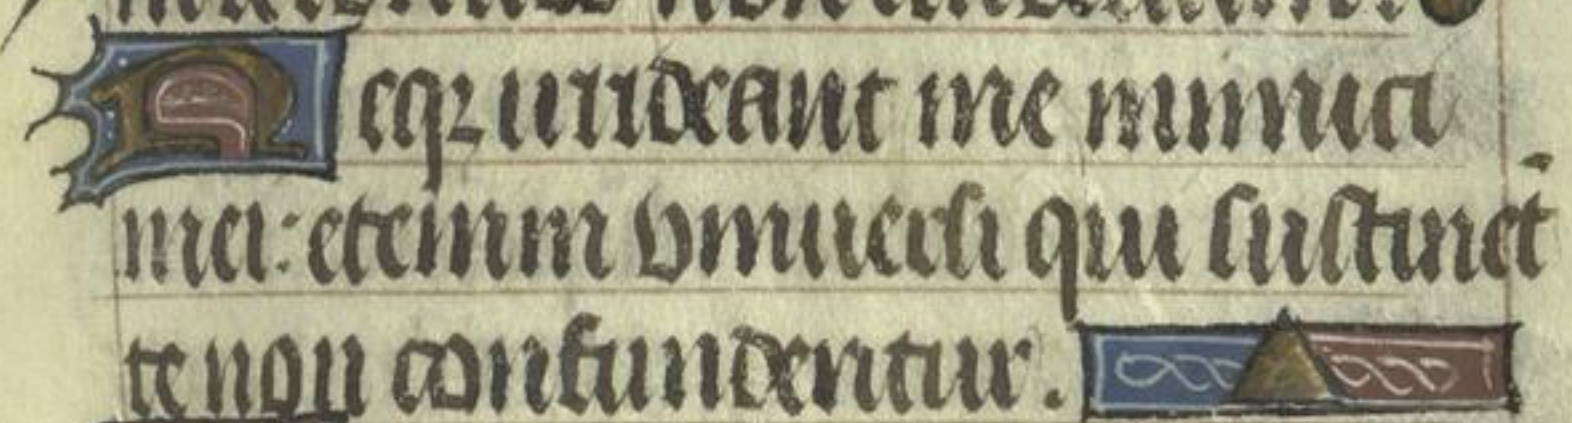 Neqꝫ irrideant me inimici
mei: etenim vniuersi qui sustinēt
te non confundentur.